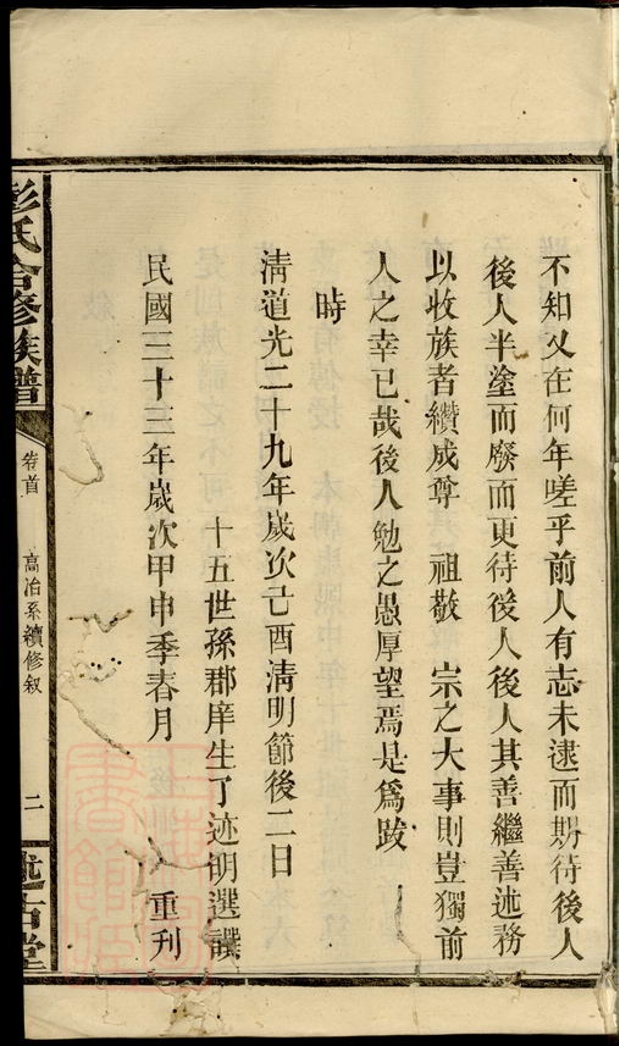 不知又在何年嗟乎前人有志未逮而期待後人
後人半塗而廢而更待後人後人其善繼善述務
以收族者纘成尊 祖敬 宗之大事則豈獨前
人之幸已哉後人勉之愚厚望焉是爲跋
時
淸道光二十九年歲次己酉淸明節後二日
十五世孫郡庠生了迹明選譔
民國三十三年歲次甲申季春月 重刋
彭氏合修族譜 卷首 高冶系續修叙 二 述古堂